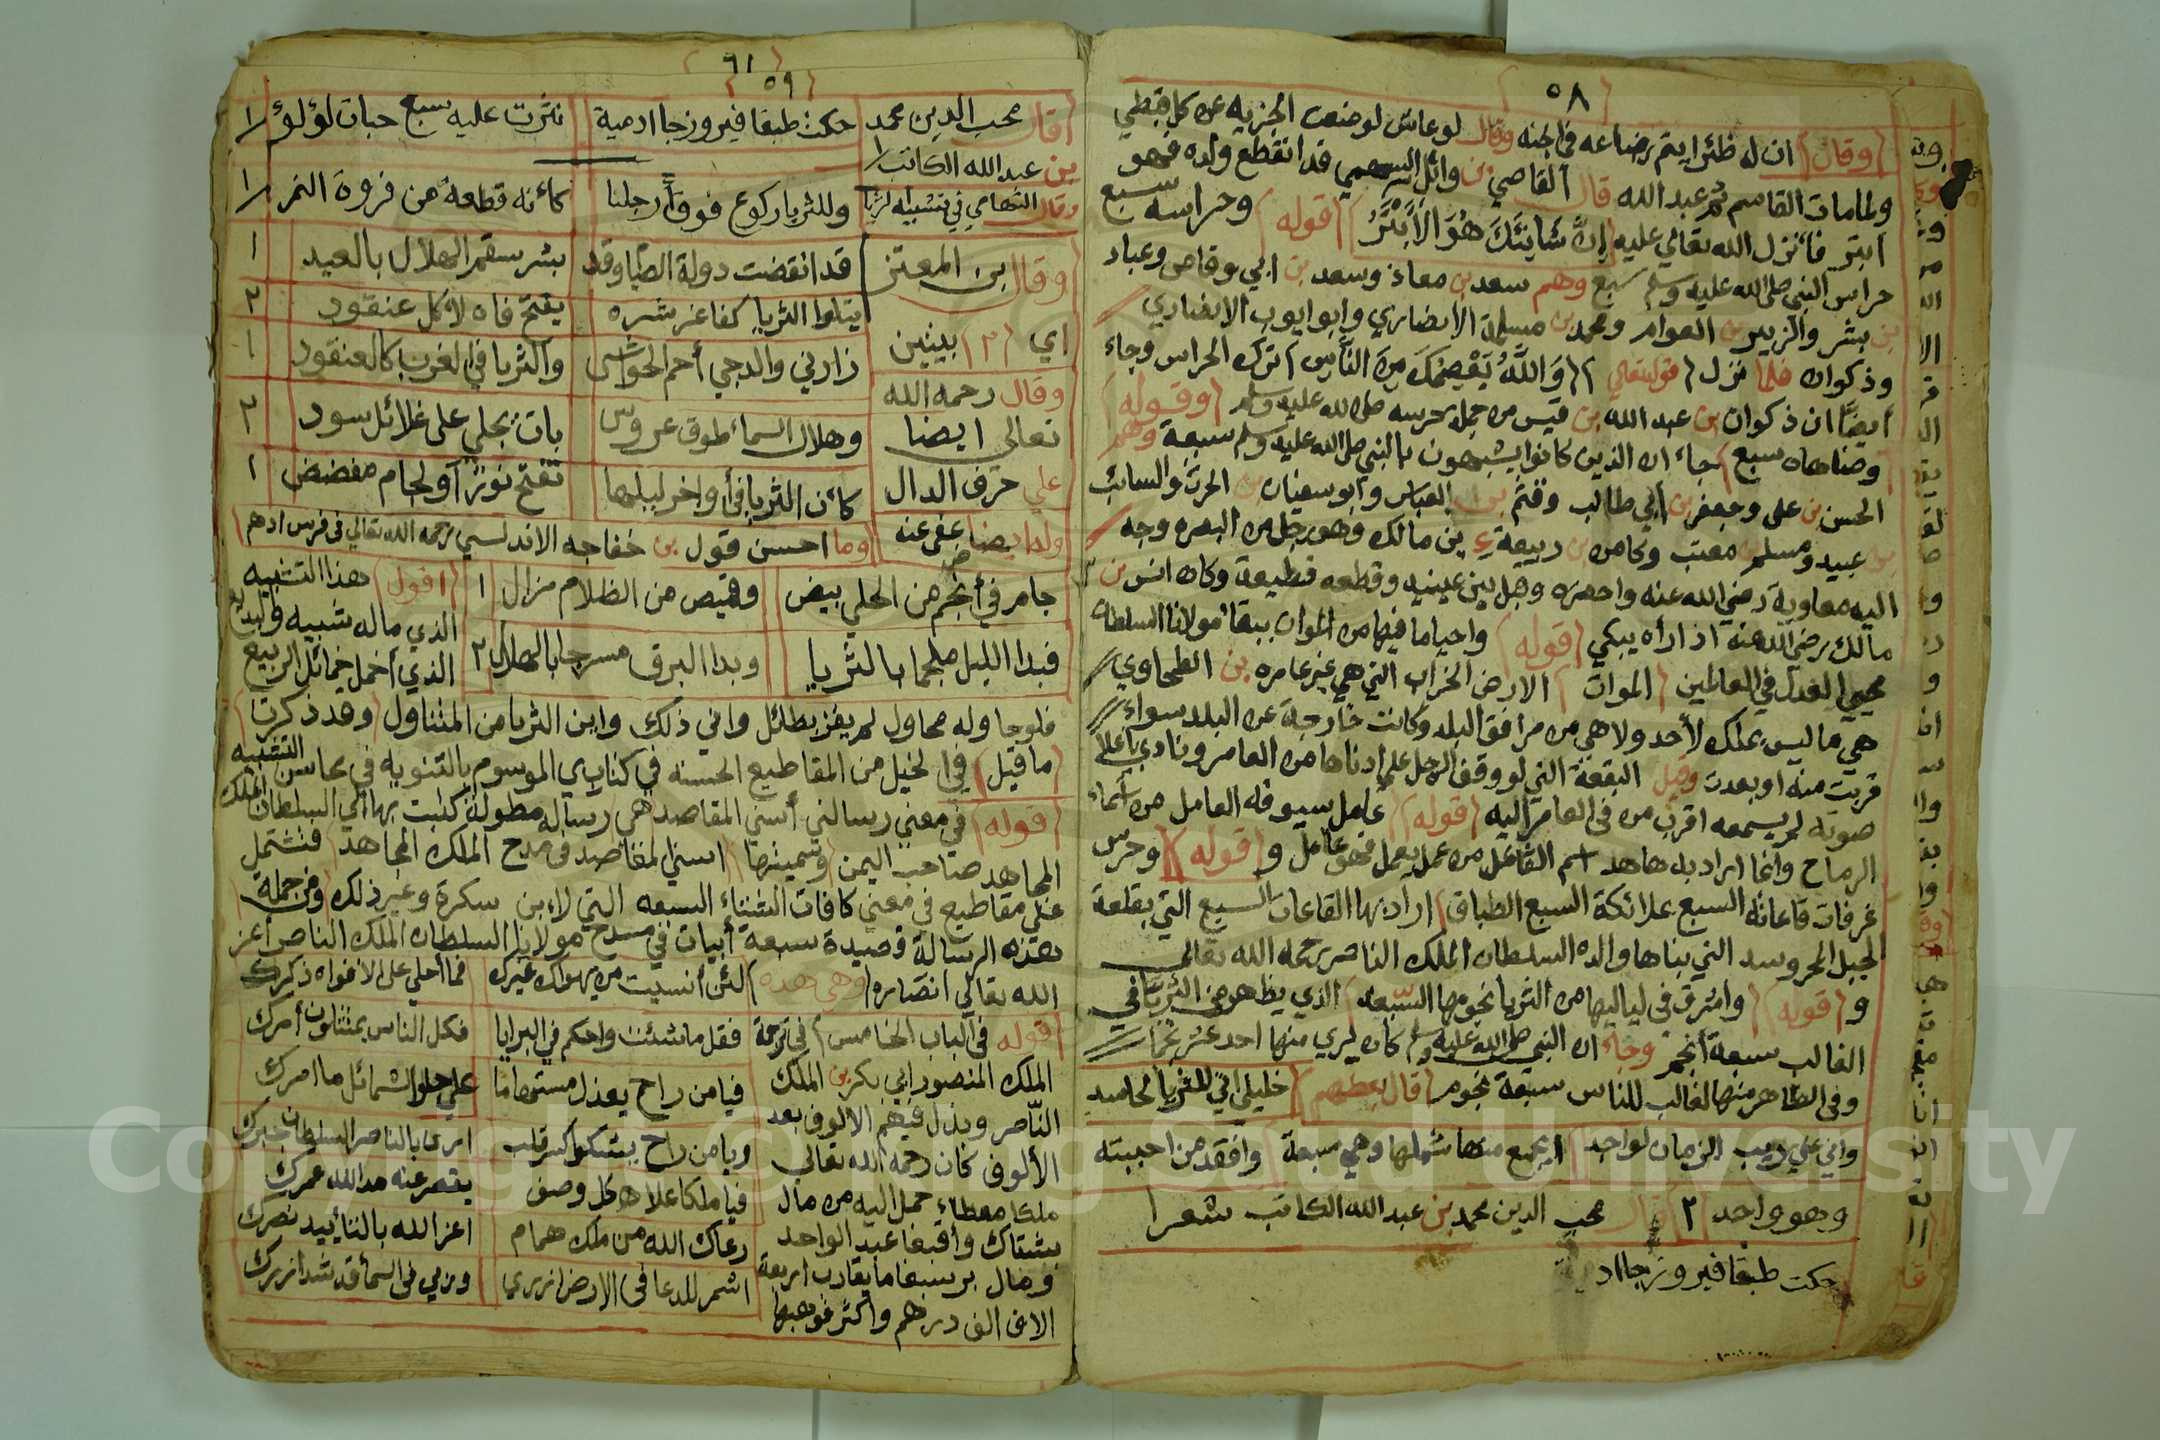 ٥٨
وقال ان له ظئرا يتم رضاعه في الجنه وقال لو عاش لوضعت الجزيه عن كل قبطي
ولما مات القاسم عبد الله قال القاصي بن وائل السهمي قد انقطع ولده فهو
ابتر فأنزل الله تعالي عليه إنَّ شانِئَكَ هُوَ الأَبْتَرُ قوله وحراسه سبع
حراس النبي صلى الله عليه وسلم سبع وهم سعد بن معاذ وسعد بن ابي وقاص وعباد
بن بشر والزبير بن العوام ومحمد بن مسلمة الانصاري وابو ايوب الانصاري
وذكوان فلما نزل قوله تعالي وَاللَّهُ يَعْصِمُكَ مِنَ النَّاسِ ترك الحراس وجاء
أيضاً ان ذكوان بن عبد الله بن قيس من جملة حرسه صلى الله عليه وسلم وقوله
وضاهاه سبع جاء ان الذين كانوا يشبهون بالنبي صلى الله عليه وسلم سبعة وهم
الحسن بن علي وجعفر بن أبي طالب وقثم بن العباس وأبو سفيان بن الحرث والسائب
بن عبيد ومسلم بن معتب وكامن بن ربيعة بن مالك وهو رجل من البصره وجه
اليه معاوية رضي الله عنه واحضره وقبل بين عينيه وقطعه قطيعة وكان انس بن
مالك رضي الله عنه اذا رأه يبكي قوله واحيا ما فيها من الموات ببقاء مولانا السلطان
محيي العدل في العالمين الموات الارض الخراب التي هي غير عامره بن الطحاوي
هي ما ليس بملك لأحد ولا هي من مرافق البلد وكانت خارجة عن البلد سواء
قربت منه او بعدت وقيل البقعة التي لو وقف الرجل على ادناها من العامر ونادي باعلا
صوته لم يسمعه اقرب من في العامر اليه قوله عامل سيوفه العامل من أسماء
الرماح وانما اراد به هاهنا اسم الفاعل من عمل يعمل فهو عامل و قوله وحرس
غرفات قاعاته السبع بملائكة السبع الطباق اراد بها القاعات السبع التي بقلعة
الجبل المحروسه التي بناها والده السلطان الملك الناصر رحمه الله تعالي
و قوله واشرق في لياليها من الثريا نجومها السّبعه الذي يظهر من الثريّا في
الغالب سبعة أنجم وجاء ان النبي صلى الله عليه وسلم كان يري منها احد عشر نجما
وفي الظاهر منها الغالب للناس سبعة نجوم قال بعضهم خليلي اني للثريا لحاسد
واني علي ريب الزمان لواجد ايجمع منها شملها وهي سبعة وافقد من احببته
وهو واحد ٢ قال محب الدين محمد بن عبد الله الكاتب شعرا
حكت طبقا فيروزجا اد
٦١
٥٩
قال محب الدين محمد حكت طبقا فيروزجا ادمية نثرت عليه سبع حبات لؤلؤ ١
بن عبد الله الكاتب
وقال التهامي في تشبيه الثريا وللثريا ركوع فوق أرجلنا كأنه قطعة من فروة النمر ١
وقال بن المعتز قد انقضت دولة الصيام وقد بشر سقم الهلال بالعيد ١
يتلوا الثريا كفاغر شره يفتح فاه لاكل عنقود ٢
اي ٢ بيتين زارني والدجي أحم الحواشي والثريا في الغرب كالعنقود ١
وقال رحمه الله
تعالى ايضا وهلال السماء طوق عروس بات يجلي على غلائل سود ٢
علي حرف الدال كأن الثريا في أواخر ليلها تفتح نور او لجام مفضض ١
وله ايضا عفي عنه وما احسن قول بن خفاجه الاندلسي رحمه الله تعالي في فرس ادهم
جامر في أنجم من الحلي بيض وقميص من الظلام مزال ١ اقول هذا التشبيه
الذي ماله شبيه والبديع
فبدا الليل ملجما بالثريا وبدا البرق مسرجا بالهلال ٢ الذي أخمل خمائل الربيع
فلو حاوله محاول لم يفز بطائل واني ذلك واين الثريا من المتناول وقد ذكرت
ما قيل في الخيل من المقاطيع الحسنه في كتابي الموسوم بالتنويه في محاسن التشبيه
قوله في معني رسالتي أسني المقاصد هي رساله مطولة كتبت بها الي السلطان الملك
المجاهد صاحب اليمن وسميتها اسني المقاصد في مدح الملك المجاهد فتشتمل
علي مقاطيع في معني كافات الشتاء السبعه التي لابن سكرة وغير ذلك ومن جملة
هذه الرسالة قصيدة سبعة أبيات في مدح مولانا السلطان الملك الناصر أعز
الله تعالي انصاره وهي هذه لئن أنسيت من يهواك غيرك فما أحلي على الافواه ذكرك
قوله في الباب الخامس في ترجمة فقل ما شئت واحكم في البرايا فكل الناس يمتثلون أمرك
الملك المنصور ابي بكر بن الملك فيا من راح يعذل مستهاما علي حلو الشمائل ما امرك
النّاصر وبذل فيهم الالوف بعد
الألوف كان رحمه الله تعالي ويا من راح يشكوا كسر قلب اتري بالناصر السلطان جبرك
ملكا معطاء حمل اليه من مال فيا ملكا علا هل كل وصف يقصر عنه مد الله عمرك
بشتاك وأقبغا عبد الواحد رعاك الله من ملك همام اعز الله بالتأييد نصرك
ومال برسبغا ما يقارب اربعة اشمر للدعا في الارض ازري وربي في السما قد شد ازرك
الاف الف درهم وأكثر فوهبها